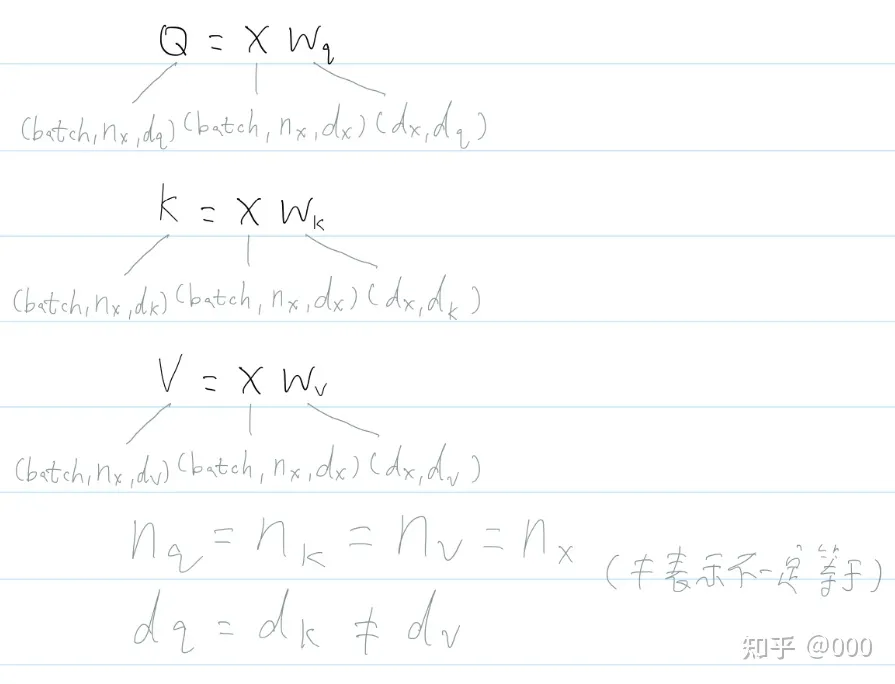 Q = X Wq
(batch,nx,dq) (batch,nx,dx) (dx,dq)
k = X Wk
(batch,nx,dk) (batch,nx,dx) (dx,dk)
V = X Wv
(batch,nx,dv) (batch,nx,dx) (dx,dv)
nq = nk = nv = nx
(≠表示不一定等于)
dq = dk ≠ dv
知乎 @000